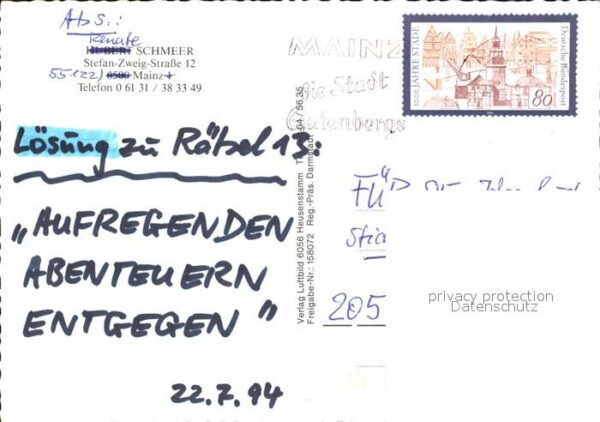 Abs.:
Renate
HUBERT SCHMEER
Stefan-Zweig-Straße 12
55122) 6500 Mainz 1
Telefon 0 61 31 / 38 33 49
MAINZ
die Stadt
Gutenbergs
1000 JAHRE STADE
Deutsche Bundespost
80
Lösung zu Rätsel 13:
„AUFREGENDEN
ABENTEUERN
ENTGEGEN"
22.7.94
Verlag Luftbild 6056 Heusenstamm
Freigabe-Nr.: 158072 Reg.-Präs. Darmstadt
FÜ
205
privacy protection
Datenschutz